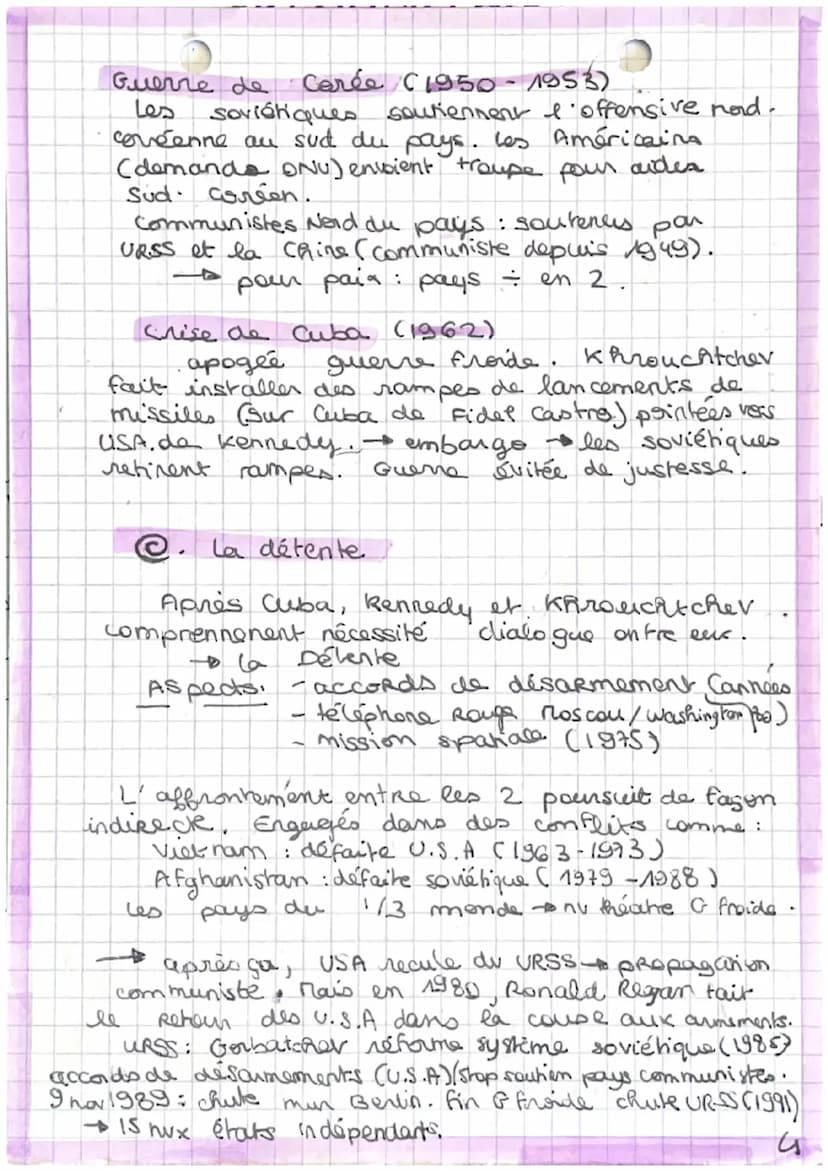 Guerre de Corée (1950 - 1953)
Les soviétiques soutiennent l'offensive nord-
coréenne au sud du pays. Les Américains
(demande ONU) envoient troupe pour aider
Sud-coréen.
Communistes Nord du pays : soutenus par
URSS et la Chine (communiste depuis 1949).
→ pour paix : pays ÷ en 2.
Crise de Cuba (1962)
apogée guerre froide. Khrouchtchev
fait installer des rampes de lancements de
missiles (sur Cuba de Fidel Castro) pointées vers
USA de Kennedy. → embargo → les soviétiques
retirent rampes. Guerre évitée de justesse.
C. La détente
Après Cuba, Kennedy et Khrouchtchev
comprennenent nécessité dialogue entre eux.
→ la Détente
Aspects: - accords de désarmement (années
- téléphone Rouge Moscou/Washington 70)
- mission spatiale (1975)
L'affrontement entre les 2 poursuit de façon
indirecte. Engagés dans des conflits comme :
Vietnam : défaite U.S.A (1963-1973)
Afghanistan : défaite soviétique (1979-1988)
Les pays du 1/3 monde → nv théâtre G froide.
→ après ça, USA recule du URSS → propagation
communiste. Mais en 1980, Ronald Regan fait
le retour des U.S.A dans la course aux armements.
URSS : Gorbatchev réforme système soviétique (1985)
accords de désarmements (U.S.A)/stop soutien pays communistes.
9 nov 1989 : chute mur Berlin. Fin G froide chute URSS (1991)
→ 15 nvx états indépendants.
4